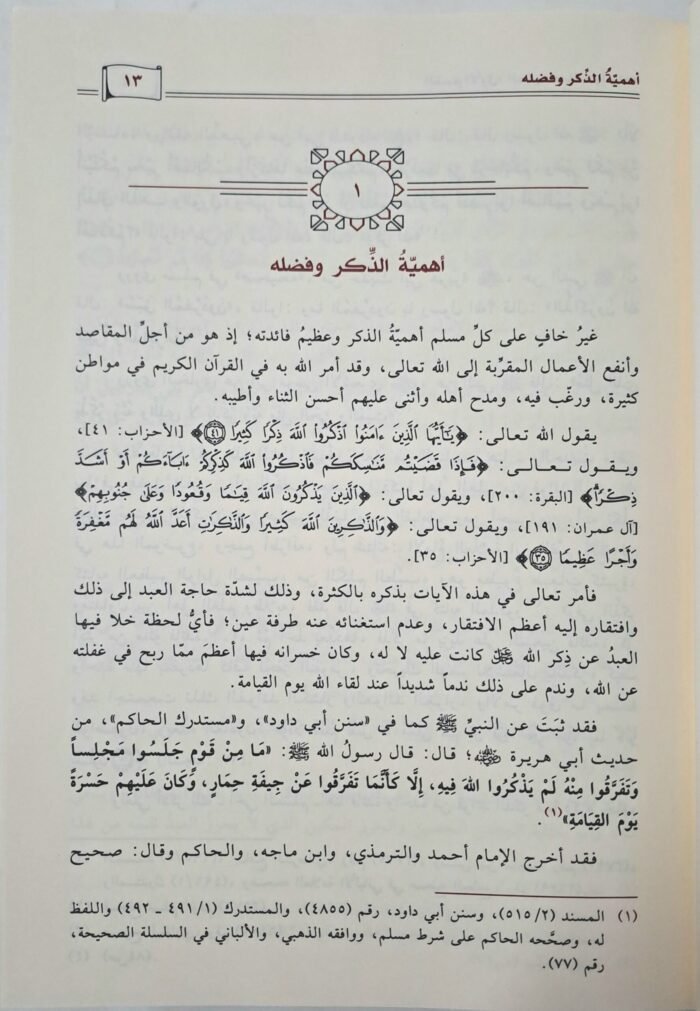 أهميّةُ الذّكر وفضله
١٣
١
أهميّةُ الذِّكر وفضله
غيرُ خافٍ على كلِّ مسلم أهميّةُ الذكر وعظيمُ فائدته؛ إذ هو من أجلِّ المقاصد
وأنفع الأعمال المقرِّبة إلى الله تعالى، وقد أمر الله به في القرآن الكريم في مواطن
كثيرة، ورغّب فيه، ومدح أهله وأثنى عليهم أحسن الثناء وأطيبه.
يقول الله تعالى: ﴿يَٰٓأَيُّهَا ٱلَّذِينَ ءَامَنُوا۟ ٱذْكُرُوا۟ ٱللَّهَ ذِكْرًا كَثِيرًا ٤١﴾ [الأحزاب: ٤١]،
ويـقـول تـعـالـى: ﴿فَإِذَا قَضَيْتُم مَّنَٰسِكَكُمْ فَٱذْكُرُوا۟ ٱللَّهَ كَذِكْرِكُمْ ءَابَآءَكُمْ أَوْ أَشَدَّ
ذِكْرًا﴾ [البقرة: ٢٠٠]، ويقول تعالى: ﴿ٱلَّذِينَ يَذْكُرُونَ ٱللَّهَ قِيَٰمًا وَقُعُودًا وَعَلَىٰ جُنُوبِهِمْ﴾
[آل عمران: ١٩١]، ويقول تعالى: ﴿وَٱلذَّٰكِرِينَ ٱللَّهَ كَثِيرًا وَٱلذَّٰكِرَٰتِ أَعَدَّ ٱللَّهُ لَهُم مَّغْفِرَةً
وَأَجْرًا عَظِيمًا ٣٥﴾ [الأحزاب: ٣٥].
فأمر تعالى في هذه الآيات بذكره بالكثرة، وذلك لشدّة حاجة العبد إلى ذلك
وافتقاره إليه أعظم الافتقار، وعدم استغنائه عنه طرفة عين؛ فأيُّ لحظة خلا فيها
العبدُ عن ذِكر الله ﷻ كانت عليه لا له، وكان خسرانه فيها أعظمَ ممّا ربح في غفلته
عن الله، وندم على ذلك ندماً شديداً عند لقاء الله يوم القيامة.
فقد ثبَتَ عن النبيِّ ﷺ كما في «سنن أبي داود»، و«مستدرك الحاكم»، من
حديث أبي هريرة رضي الله عنه؛ قال: قال رسولُ الله ﷺ: «مَا مِنْ قَوْمٍ جَلَسُوا مَجْلِساً
وَتَفَرَّقُوا مِنْهُ لَمْ يَذْكُرُوا اللهَ فِيهِ، إِلَّا كَأَنَّمَا تَفَرَّقُوا عَنْ جِيفَةِ حِمَارٍ، وَكَانَ عَلَيْهِمْ حَسْرَةً
يَوْمَ القِيَامَةِ»(١).
فقد أخرج الإمام أحمد والترمذي، وابن ماجه، والحاكم وقال: صحيح
(١) المسند (٢/ ٥١٥)، وسنن أبي داود، رقم (٤٨٥٥)، والمستدرك (١/ ٤٩١ ـ ٤٩٢) واللفظ
له، وصحَّحه الحاكم على شرط مسلم، ووافقه الذهبي، والألباني في السلسلة الصحيحة،
رقم (٧٧).